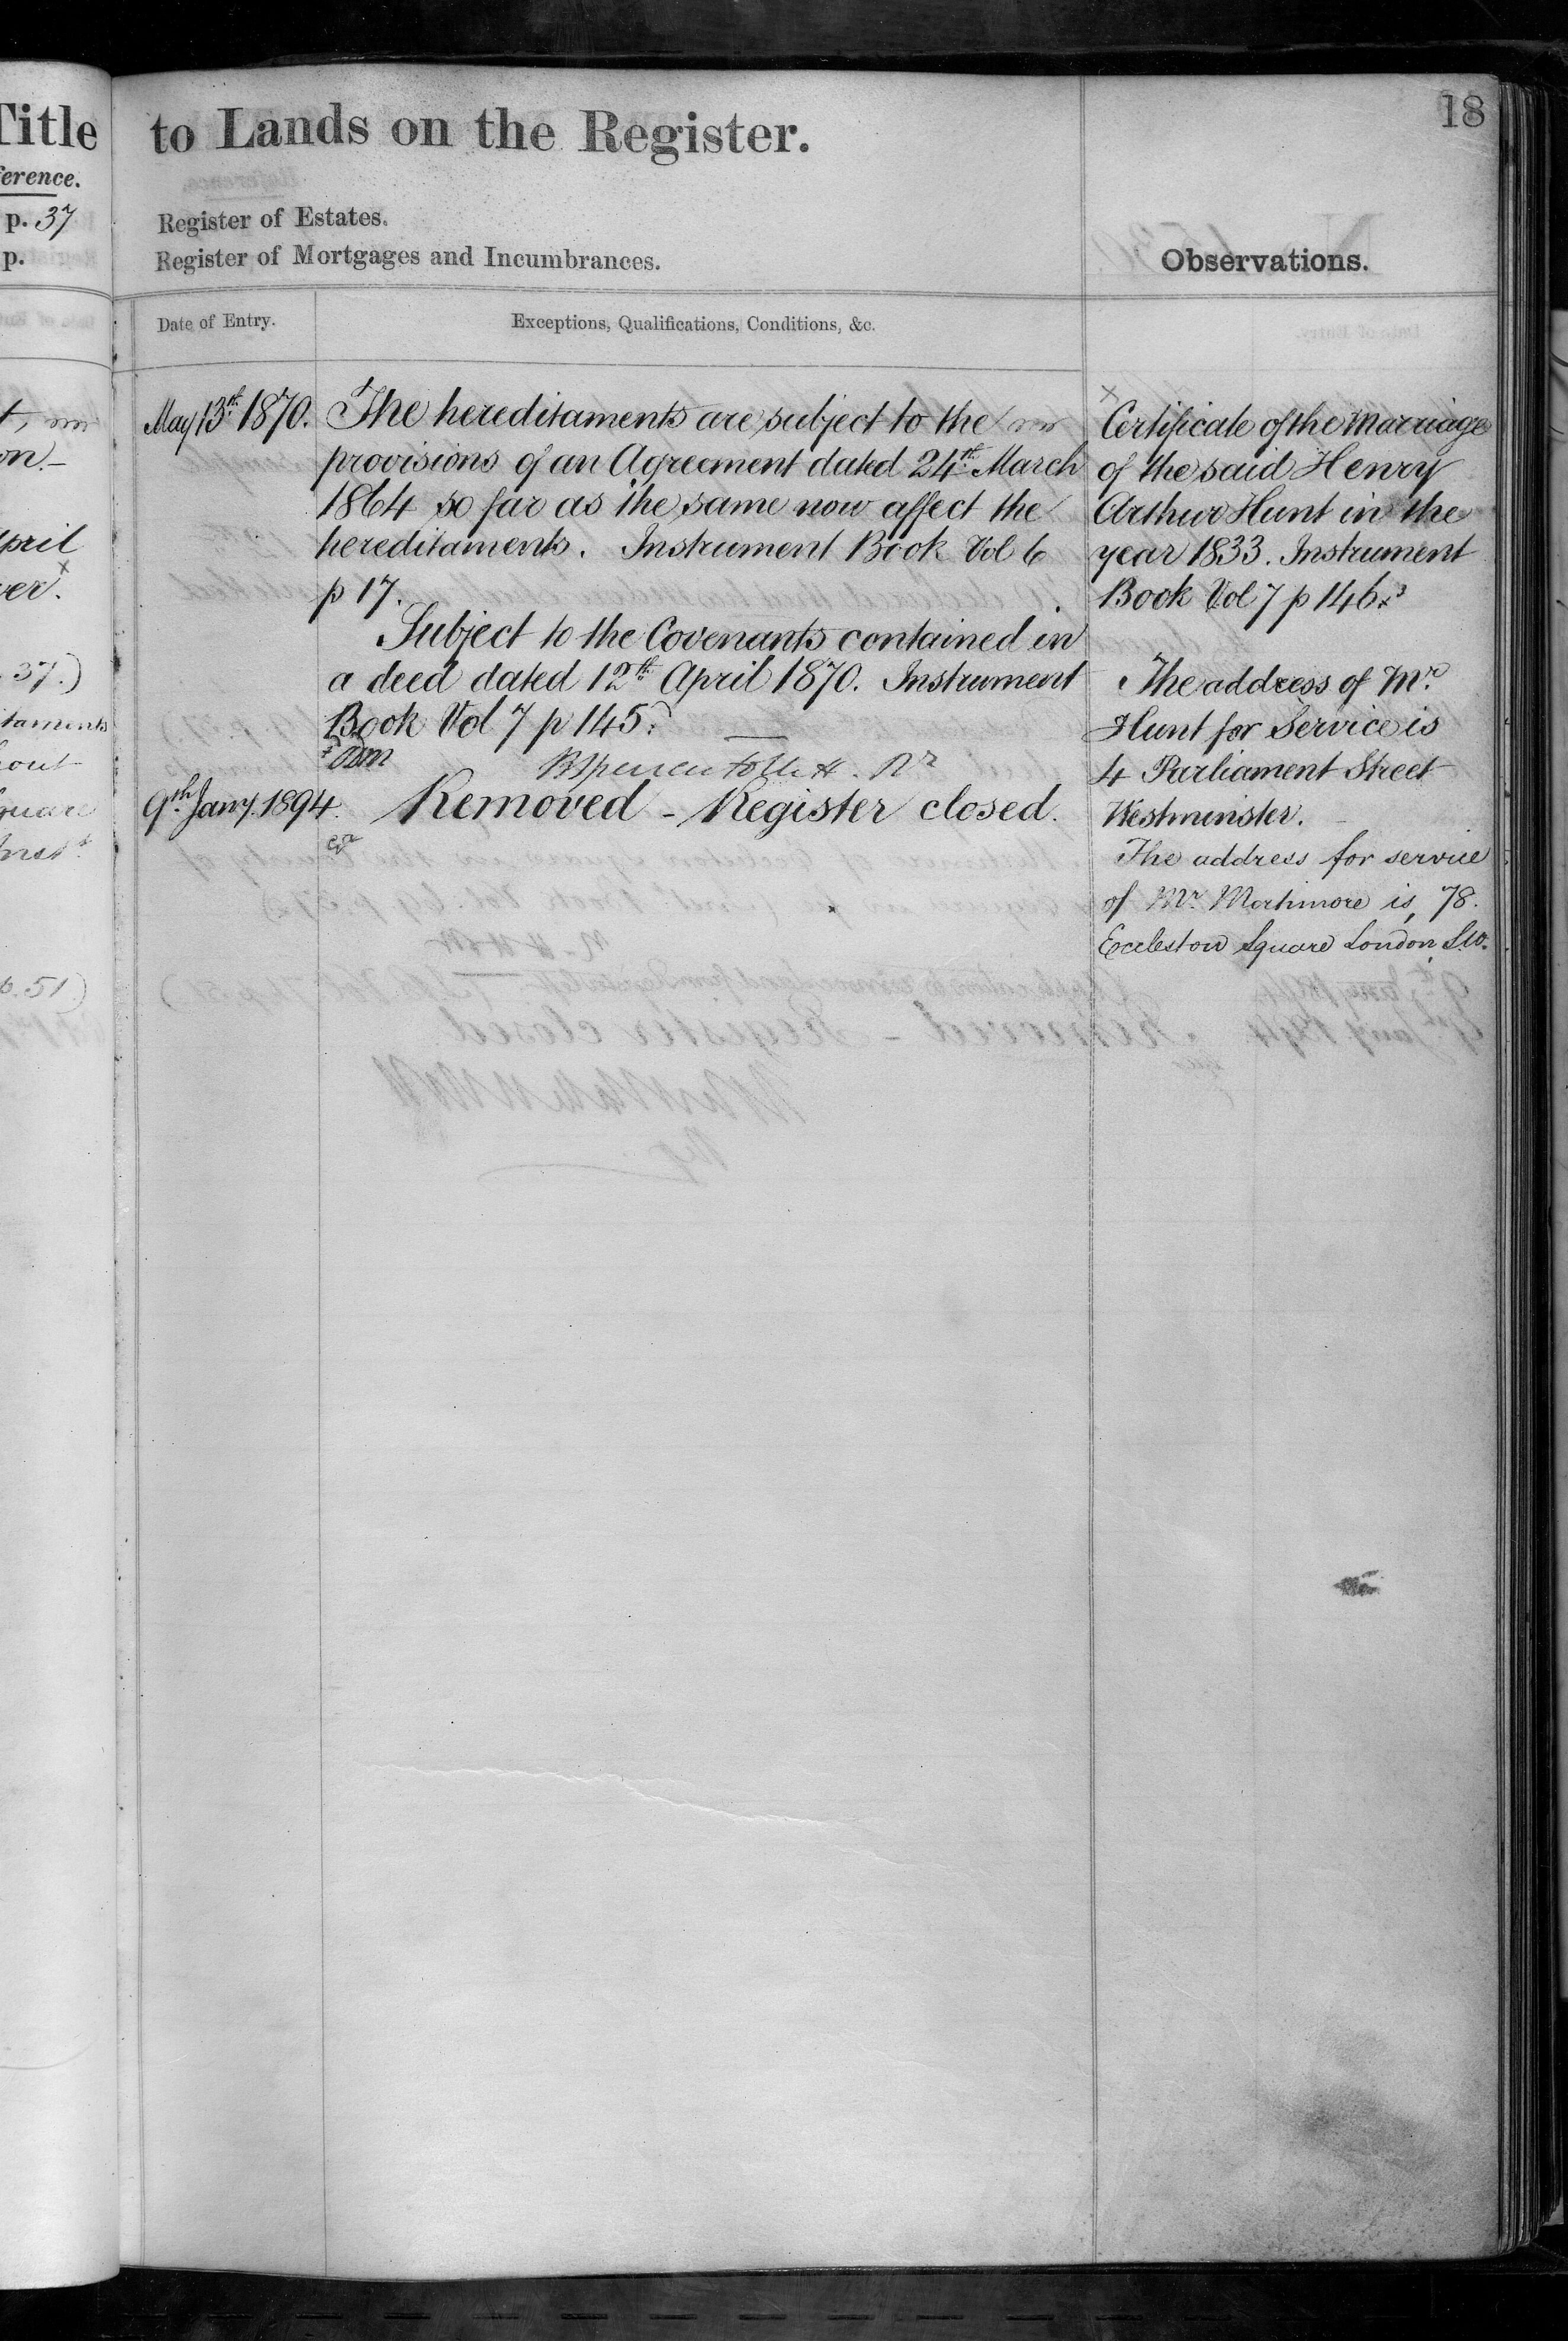 Title
ference.
p. 37
p.
pril
ver.
37.)
taments
p. 51)
18
to Lands on the Register.
Register of Estates.
Register of Mortgages and Incumbrances.
Observations.
Date of Entry.
Exceptions, Qualifications, Conditions, &c.
May 13th. 1870.
The hereditaments are subject to the
provisions of an Agreement dated 24th. March
1864 so far as the same now affect the
hereditaments. Instrument Book Vol 6
p 17.
Subject to the Covenants contained in
a deed dated 12th. April 1870. Instrument
Book Vol 7 p 145.
9th Jany. 1894.
Removed - Register closed.
x
Certificate of the Marriage
of the said Henry
Arthur Hunt in the
year 1833. Instrument
Book Vol 7 p 146.
The address of Mr.
Hunt for Service is
4 Parliament Street
Westminster.
The address for service
of Mr. Mortimore is, 78.
Eccleston Square London S.W.